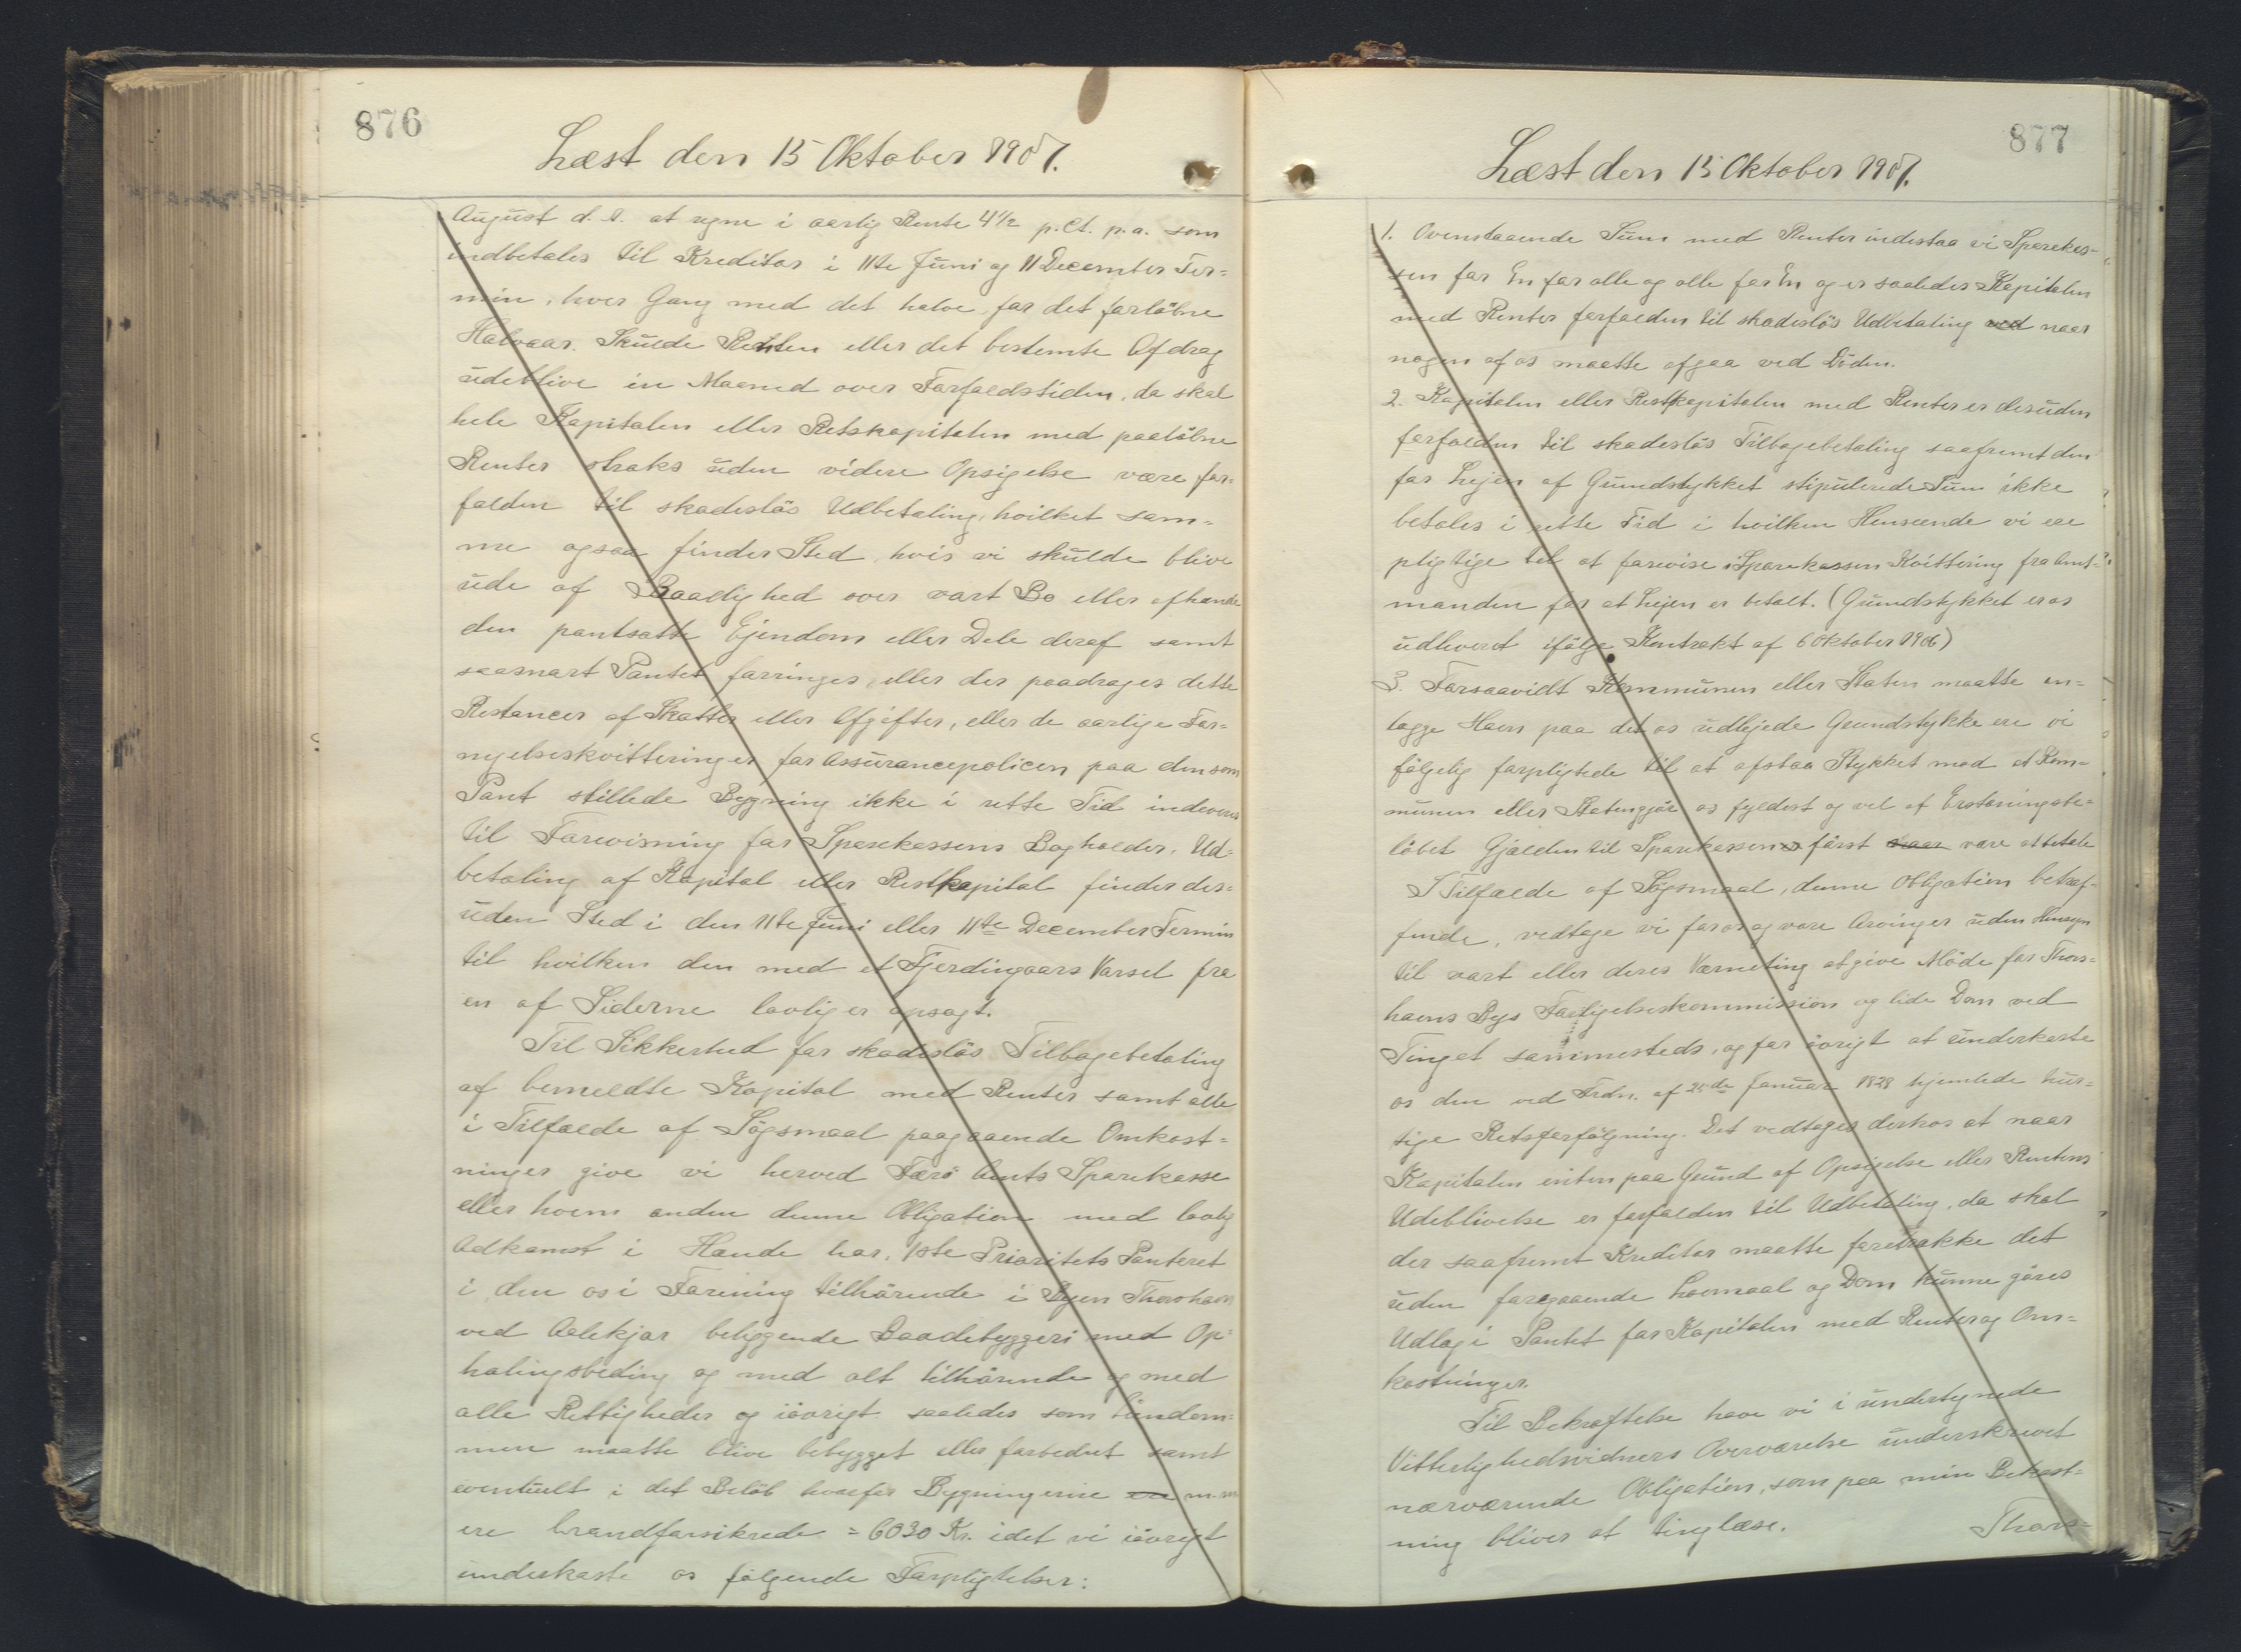 876
Læst den 15 Oktober 1907.
August d. A. at regne i aarlig Rente 4½ p.Ct. p.a. som
indbetales til Kreditor i 11te Juni og 11 December Ter=
min, hver Gang med det halve for det forløbne
Halvaar. Skulde Renten eller det bestemte Afdrag
udeblive en Maaned over Forfaldstiden, da skal
hele Kapitalen eller Restkapitalen med paaløbne
Renter straks uden videre Opsigelse være for=
falden til skadesløs Udbetaling, hvilket sam=
me ogsaa finder Sted, hvis vi skulde blive
ude af Raadighed over vort Bo eller afhænde
den pantsatte Ejendom eller Dele deraf samt
saasnart Pantet forringes, eller der paadrages dette
Restancer af Skatter eller Afgifter, eller de aarlige For=
nyelseskvitteringer for Assurancepolicen paa den som
Pant stillede Bygning ikke i rette Tid indleveres
til Forevisning for Sparekassens Bogholder. Ud=
betaling af Kapital eller Restkapital finder des=
uden Sted i den 11te Juni eller 11te December Termin
til hvilken den med et Fjerdingaars Varsel fra
en af Siderne lovlig er opsagt.
Til Sikkerhed for skadesløs Tilbagebetaling
af bemeldte Kapital med Renter samt alle
i Tilfælde af Søgsmaal paagaaende Omkost=
ninger give vi herved Færø Amts Sparekasse
eller hvem anden denne Obligation med lovlig
Adkomst i Hænde har, 1ste Prioritets Panteret
i den os i Forening tilhørende i Byen Thorshavn
ved Aalekjær beliggende Baadebyggeri med Op=
halingsbeding og med alt tilhørende og med
alle Rettigheder og iøvrigt saaledes som Eiendom=
men maatte blive bebygget eller forbedret samt
eventuelt i det Beløb hvorfor Bygningerne ere m.m
ere brandforsikrede = 6030 Kr. idet vi iøvrigt
underkaste os følgende Forpligtelser:
877
Læst den 15 Oktober 1907.
1. Ovenstaaende Sum med Renter indestaa vi Sparekas=
sen for En for alle og alle for En og er saaledes Kapitalen
med Renter forfalden til skadesløs Udbetaling ved naar
nogen af os maatte afgaa ved Døden.
2. Kapitalen eller Restkapitalen med Renter er desuden
forfalden til skadesløs Tilbagebetaling saafremt den
for Lejen af Grundstykket stipulerede Sum ikke
betales i rette Tid i hvilken Henseende vi ere
pligtige til at forevise i Sparekassen Kvittering fra Amt=
manden for at Lejen er betalt. (Grundstykket er os
udlveret ifølge Kontrakt af 6 Oktober 1906)
3. Forsaavidt Kommunen eller Staten maatte an=
lægge Havn paa det os udlejede Grundstykke ere vi
følgelig forpligtede til at afstaa Stykket mod at Kom=
munen eller Staten gjør os fyldest og vel af Erstatningsbe=
løbet Gjælden til Sparekassen først være at betale
I Tilfælde af Søgsmaal, denne Obligation betræf=
fende, vedtage vi for os og vore Arvinger uden Hensyn
til vort eller deres Værneting at give Møde for Thors=
havns Bys Forligelseskommission og lide Dom ved
Tinget sammesteds, og for øvrigt at underkaste
os den ved Frdn. af 25de Januar 1828 hjemlede hur=
tige Retsforfølgning. Det vedtages derhos at naar
Kapitalen enten paa Grund af Opsigelse eller Rentens
Udeblivelse er forfalden til Udbetaling, da skal
der saafremt Kreditor maatte foretrække det
uden foregaaende Lovmaal og Dom kunne gøres
Udlæg i Pantet for Kapitalen med Renter og Om=
kostninger.
Til Bekræftelse have vi i undertegnede
Vitterlighedsvidners Overværelse underskrevet
nærværende Obligation, som paa min Bekost=
ning bliver at tinglæse. Thors=